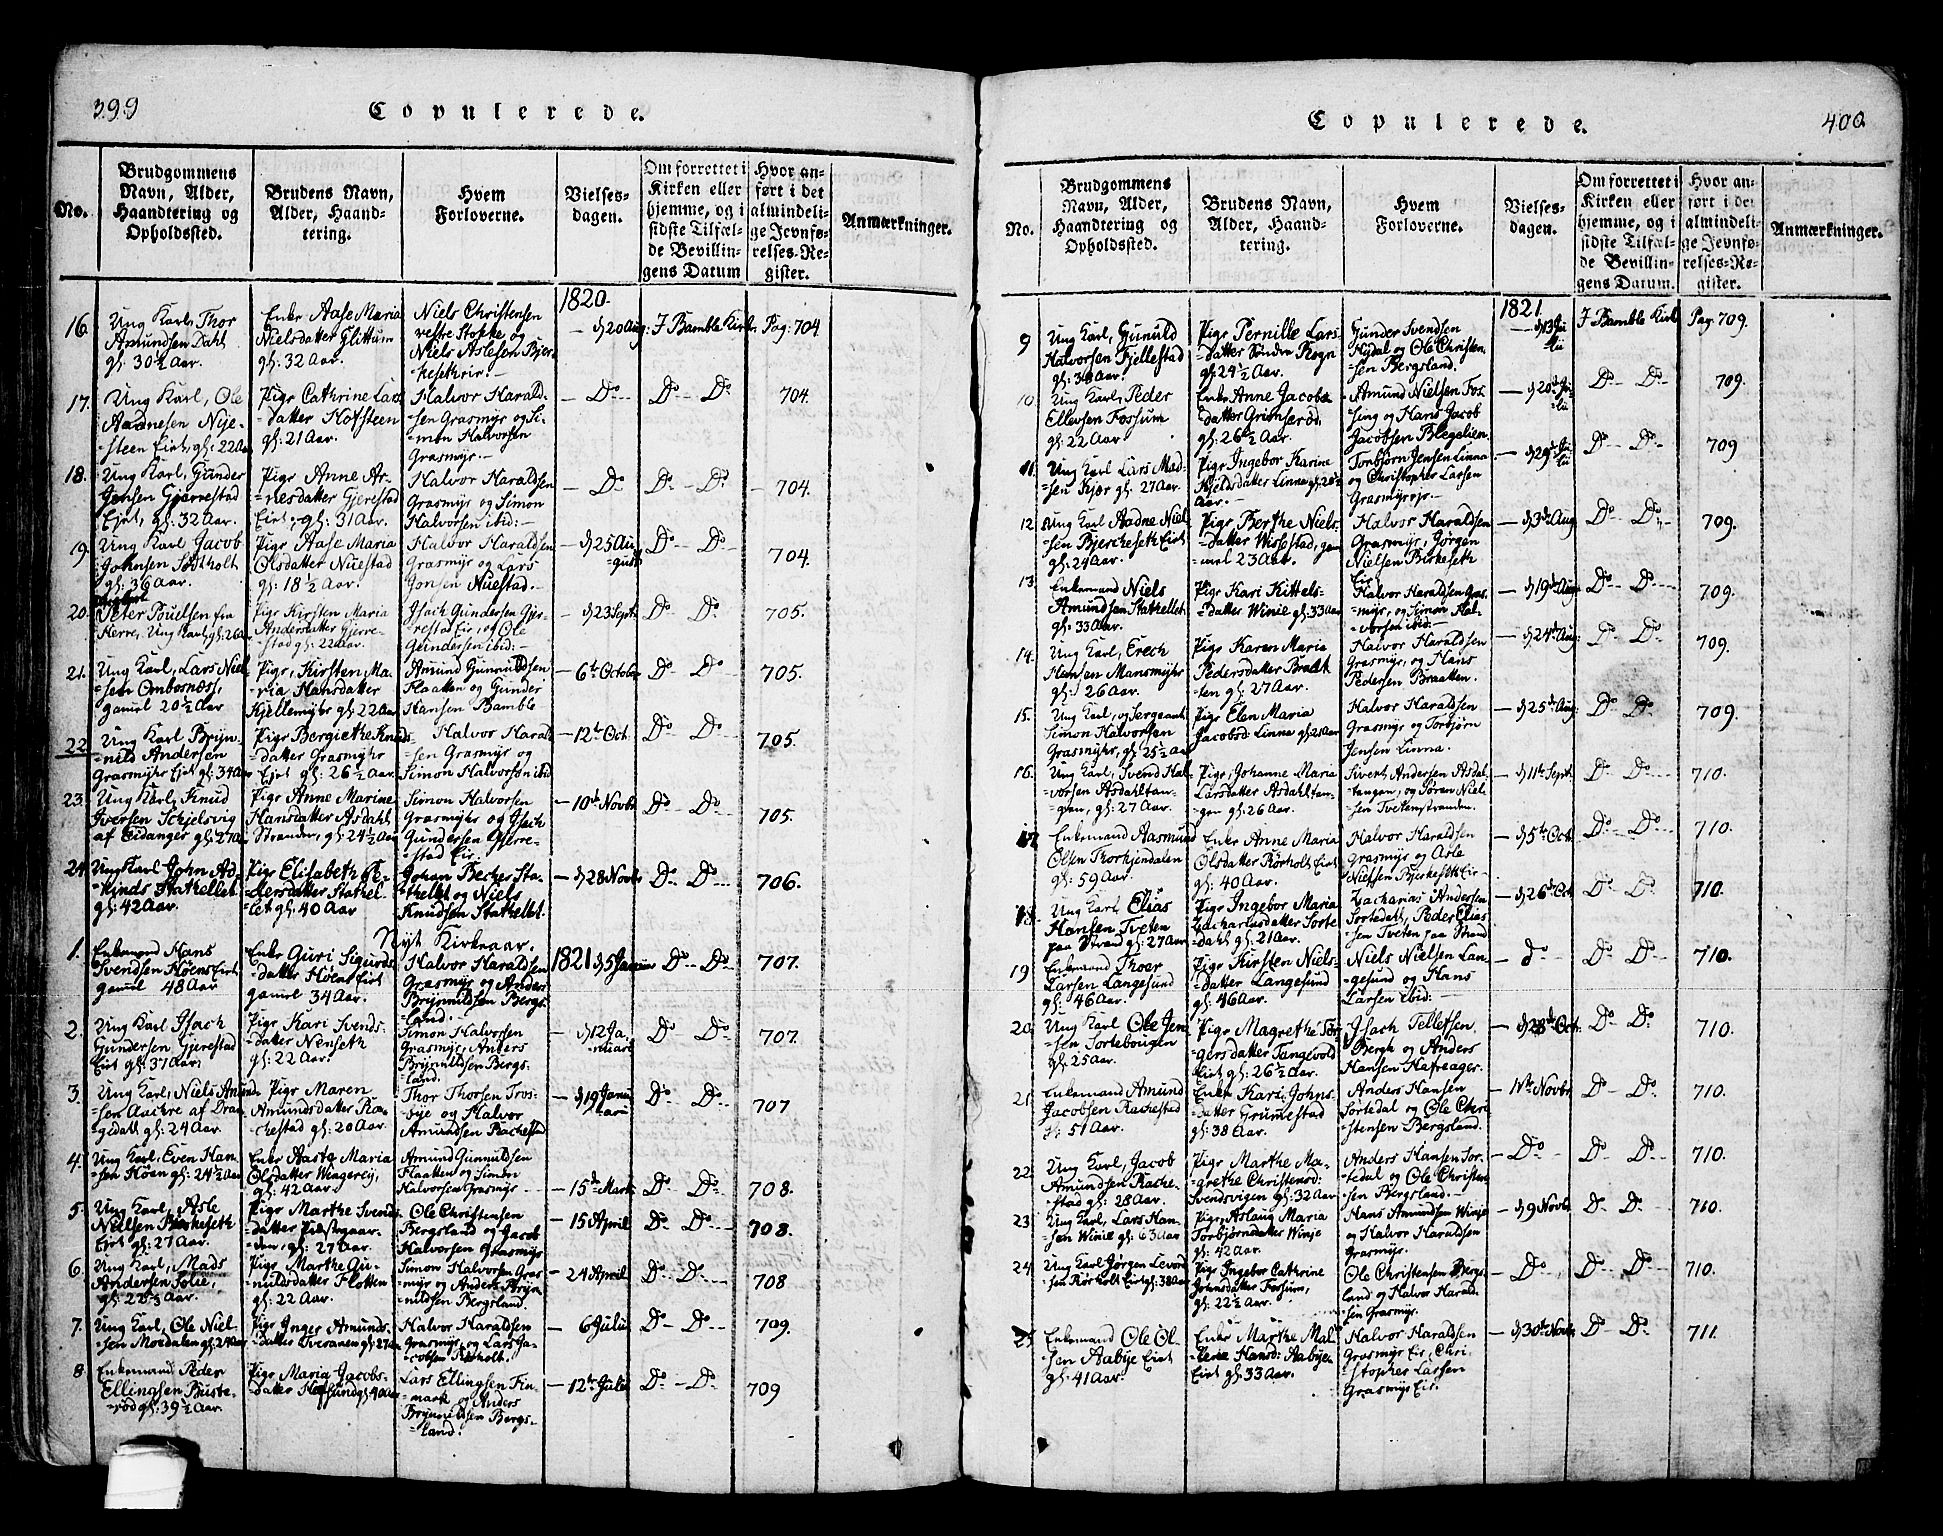 399
Copulerede.
No.
Brudgommens
Navn, Alder,
Haandtering og
Opholdssted.
Brudens Navn,
Alder, Haand-
tering.
Hvem
Forloverne.
Vielses-
dagen.
Om forrettet i
Kirken eller
hjemme, og i
sidste Tilfæl-
de Bevillin-
gens Datum
Hvor an-
ført i det
almindeli-
ge Jevnfø-
relses-Re-
gister.
Anmærkninger.
1820.
16.
Ung Karl, Thor
Amundsen Dahl
gl: 30½ Aar.
Enke Aase Maria
Nielsdatter Glittum
gl: 32 Aar.
Niels Christensen
vestre Stokke og
Niels Aslesen Bjer-
keseth
- d 20 Aug:
I Bamble Kirke
Pag: 704
17.
Ung Karl, Ole
Aadnesen Nije-
steen Eiet, gl: 22 Aar
Pige Cathrine Lars
datter Hofsteen
gl: 21 Aar.
Halvor Harald-
sen Grasmyr og Si-
mon Halvorsen
Grasmyr.-
- Do
Do - Do
704.
18.
Ung Karl, Gunder
Jensen Gjerrestad
Eiet, gl: 32 Aar.
Pige Anne Ar-
nesdatter Gjerestad
Eiet, gl: 31 Aar.
Halvor Haraldsen
Grasmyr og Simon
Halvorsen ibid:-
- Do
Do - Do
704.
19.
Ung Karl Jacob
Johnsen Tostholt
gl: 36 Aar.
Pige Aase Maria
Olsdatter Nuestad
gl: 18½ Aar.
Halvor Haraldsen
Grasmyr og Lars
Jonsen Nuestad.-
- d 25 Au
gust
Do - Do
704.
20.
Peter Pouelsen fra
Herre, Ung Karl, gl: 26 Aar
Pige Kirsten Maria
Andersdatter Gjerre-
stad gl: 22 Aar
Isach Gundersen Gjer-
restad Eie, og Ole
Gundersen ibid:-
- d 23 Sept:
Do - Do
705.
21.
Ung Karl, Lars Niel
-sen Ombosnæss,
gamel 20½ Aar
Pige, Kirsten Ma-
ria Hansdatter
Kjellemyhr gl: 22 Aar
Amund Gunnuldsen
Flaatten og Gunder
Hansen Bamble
- 6te October
Do - Do
705.
22.
Ung Karl Bryn-
nild Andersen
Grasmyhr Eiet gl: 34 Aar
Pige Bergithe Knuds
datter Grasmyhr
Eiet gl: 26½ Aar.
Halvor Harald
sen Grasmyr og
Simon Halvorsen ibid
- 12te Oct
Do - Do
705.
23.
Ung Karl, Knud
Iversen Schjelsvig
af Eidanger gl: 27 Aar
Pige Anne Marine
Hansdatter Asdahl
Stranden, gl: 24½ Aar
Simon Halvorsen
Grasmyhr og Isach
Gundersen Gjerre-
stad Eie.
- 10de Novbr
Do - Do
705.
24.
Ung Karl John Ad-
kinds Stathellet
gl: 42 Aar.
Pige Elisabeth Pe-
dersdatter Stathel-
let gl: 40 Aar
Johan Becker Sta-
thellet og Niels
Knudsen Stathellet.
- d 28 Novbr
Do - Do
706.
Nyt Kirkeaar.
1.
Enkemand Hans
Svendsen Høens Eiet
gamel 48 Aar
Enke Guri Sigurds
datter Høens Eiet
gamel 34 Aar.
Halvor Haraldsen
Grasmyr og Anders
Brynnildsen Bergs-
land.
1821 d 5 Januar
Do - Do
707.
2.
Ung Karl Isach
Gundersen Gjerestad
Eiet gl: 37 Aar
Pige Kari Svends-
datter Nenseth
gl: 22 Aar.
Simon Halvorsen
Grasmyr, Anders
Brynnildsen Bergs-
land.
- d 12 Ja-
nuari
Do - Do
707.
3.
Ung Karl, Niels Amund
-sen Aackre af Dran
gedahl gl: 24 Aar.
Pige Maren
Amundsdatter Ra-
chestad gl: 20 Aar.
Thor Thorsen Tros-
bye og Halvor
Amundsen Rachestad
- d 19 Janu
ari
Do - Do
707
4.
Ung Karl, Even Han-
sen Høen gl: 24½ Aar
Enke Aaste Maria
Olsdatter Wagerey,
gl: 42 Aar.
Amund Gunnuldsen
Flaatten og Simon
Halvorsen Grasmyr -
- 15de Marts
Do - Do
708.
5.
Ung Karl, Asle
Nielsen Birkeseth
Eiet gl: 27 Aar
Pige Marthe Svends
datter
den, gl: 27 Aar.
Ole Christensen
Bergsland og Jacob
Halvorsen Grasmyr
- 15 April
Do - Do
708.
6.
Ung Karl, Mads
Andersen Tolie,
gl: 22⅓ Aar.
Pige Marthe Gu-
nildsdatter Flotten
gl: 22 Aar.
Simon Halvorsen Gras-
myr og Anders Bryn-
nildsen Bergsland.
- 24 April
Do - Do
708
7.
Ung Karl, Ole Niel
sen Moedalen gl: 24 Aar
Pige Inger Amunds
datter Tveranen gl: 27 Aar
Halvor Haraldsen
Grasmyr, og Lars Ja-
cobsen Rørholt.
- 6 Julii
Do - Do
709.
8
Enkemand Peder
Ellingsen Buste-
rød gl: 39½ Aar.
Pige Maria Jacobs-
datter gl: 40 Aar
Lars Ellingsen Fin-
mark og Anders
Brynnildsen Bergs-
land.
- 12te Julii
Do - Do
709
400
Copulerede.
No.
Brudgommens
Navn, Alder,
Haandtering og
Opholdssted.
Brudens Navn,
Alder, Haand-
tering.
Hvem
Forloverne.
Vielses-
dagen.
Om forrettet i
Kirken eller
hjemme, og i
sidste Tilfæl-
de Bevillin-
gens Datum.
Hvor an-
ført i det
almindeli-
ge Jevnfø-
relses-Re-
gister.
Anmærkninger.
1821.
9
Ung Karl, Gunuld
Halvorsen Fjellestad
gl: 30 Aar.
Pige Pernille Lars-
datter Søndre Rogn
gl: 24½ Aar.
Gunder Svendsen
Nydal og Ole Christen-
sen Bergsland.
- d 13 Ju
lii
I Bamble Kirk
Pag: 709.
10.
Ung Karl, Peder
Ellevsen Fossum
gl: 22 Aar
Enke Anne Jacobs
datter Grimserød,
gl: 26½ Aar.
Amund Nielsen Fos-
sing og Hans Jacob
Jacobsen Blegelien.
- d 20de Ju-
lii
Do - Do
709.
11.
Ung Karl Lars Mad-
sen Kjær gl: 27 Aar.
Pige Ingebor Karine
Kjeldsdatter Linna gl: 20½
Aar.-
Torbjørn Jensen Linna
og Christopher Larsen
Grasmyr.-
- d 29de Ju
lii
Do - Do
709
12.
Ung Karl Aadne Niel-
sen Bjerckeseth Eiet
gl: 24 Aar.
Pige Berthe Niels-
datter Wissestad, ga-
mel 23 Aar.
Halvor Haraldsen
Grasmyr, Jørgen
Nielsen Birkeseth
Eie
- d 3de Aug
Do - Do
709.
13.
Enkemand Niels
Amundsen Stathellet
gl: 33 Aar.
Pige Kari Kittels-
datter Winie gl: 33 Aar
Halvor Haraldsen Gras-
myr, og Simon Hal-
vorsen ibid:-
- d 19de Aug
Do - Do
709.
14.
Ung Karl, Erech
Hansen Mansmyhr
gl: 26 Aar.
Pige Karen Maria
Pedersdatter Braat
ten gl: 27 Aar.
Halvor Haraldsen
Grasmyr, og Hans
Pedersen Braatten.
- d 24de Aug:
Do - Do
709.
15.
Ung Karl, og Sergeant
Simon Halvorsen
Grasmyhr, gl: 25½ Aar
Pige Elen Maria
Jacobsd: Linna gl: 28 Aar
Halvor Haraldsen
Grasmyr og Torbjørn
Jensen Linna.
- d 25de Aug
Do - Do
709.
16.
Ung Karl, Svend Hal
-vorsen Asdahltan-
gen, gl: 27 Aar.
Pige, Johanne Maria
Larsdatter Asdahltan-
gen gl: 26 Aar.
Sivert Andersen Asdal
tangen, og Søren Niel-
sen Tvetenstranden.
- d 11te Sept
Do - Do
710.
17.
Enkemand Aasmund
Olsen Thorkjendalen
gl: 59 Aar.
Enke Anne Maria
Olsdatter Rørholt Eiet
gl: 40 Aar.
Halvor Haraldsen
Grasmyr og Asle
Nielsen Bjerkeseth Eie-
- d 5te Oct
Do - Do
710.
18.
Ung Karl Elias
Hansen Tveten
paa Strand gl: 27 Aar
Pige Ingebor Maria
Zachariasdatter Torte
dahl gl: 21 Aar.
Zacharias Andersen
Tortedahl, Peder Elias
sen Tveten paa Strand
- d 26de Oct
Do - Do
710.
19
Enkemand Thoer
Larsen Langesund
gl: 46 Aar.
Pige Kirsten Niels-
datter Langesund
gl: 46 Aar.
Niels Nielsen Lan-
gesund og Hans
Larsen ibid:-
- do
Do - Do
710.
20.
Ung Karl Ole Jen-
sen Tortebougen
gl: 25 Aar.
Pige Magrethe Tor
gersdatter Tangevold
Eiet gl: 26½ Aar.
Isach Tellefsen
Bergh og Anders
Hansen Hafreager.
- d 28de Oct.
Do - Do
710.
21.
Enkemand Amund
Jacobsen Rachestad
gl: 51 Aar.
Enke Kari Johns-
datter Grumestad
gl: 38 Aar.
Anders Hansen
Tortedal og Ole Chri
stensen Bergsland.
- 11te Novbr
Do - Do
710.
22.
Ung Karl, Jacob
Amundsen Rache-
stad gl: 28 Aar.
Pige Marthe Ma-
grethe Christensd:
Svendsvigen gl: 32 Aar
Anders Hansen Tor-
tedal og Ole Christen
sen Bergsland.-
- Do
Do - Do
710.
23.
Ung Karl, Lars Han-
sen Winie gl: 63 Aar
Pige, Aslaug Maria
Torbjørnsdatter Winje
gl: 42 Aar.
Hans Amundsen Winje
og Halvor Haraldsen
Grasmyr.
- d 9 Novbr
Do - Do
710.
24.
Ung Karl Jørgen Levord
sen Rørholt Eiet gl: 38 Aar
Pige Ingebor Cathrine
Jensdatter Fossum,
gl: 22½ Aar.
Ole Christensen Bergs-
land og Halvor Harald-
sen Grasmyr.
- Do
Do - Do
710.
25
Enkemand Ole Ol-
sen Aabye Eiet
gl: 41 Aar.
Enke Marthe Mal-
lene Hansd: Aabye
Eiet gl: 33 Aar.
Halvor Haraldsen
Grasmyr Eie, Chri-
stopher Larsen
Grasmyr Eie.
- d 30te Novb
Do - Do
711.